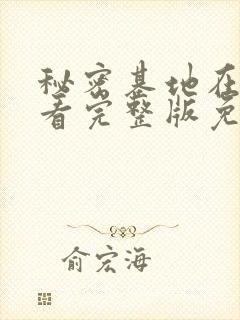 秘密基地在
看完整版免
俞宏海